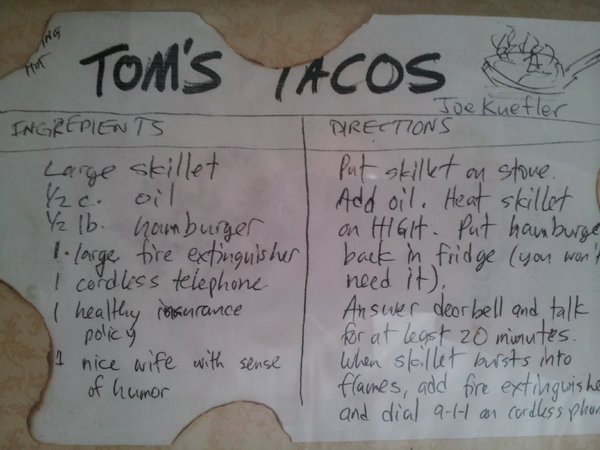 ING
HOT
TOM'S TACOS
Joe Kuefler
INGREPIENTS
Large skillet
1/2 c. oil
1/2 lb. hamburger
1 large fire extinguisher
1 cordless telephone
1 healthy insurance
policy
1 nice wife with sense
of humor
DIRECTIONS
Put skillet on stove.
Add oil. Heat skillet
on HIGH. Put hamburge
back in fridge (you won't
need it).
Answer doorbell and talk
for at least 20 minutes.
When skillet bursts into
flames, add fire extinguishe
and dial 9-1-1 on cordless phon